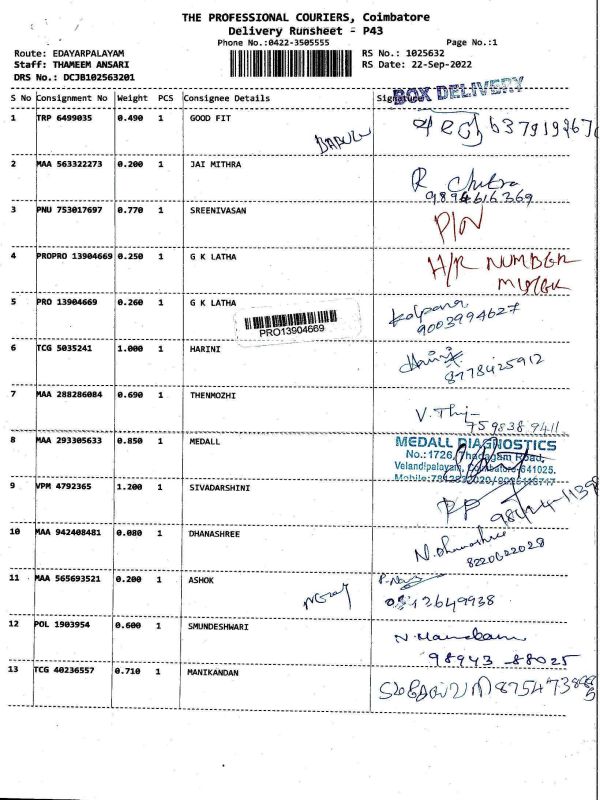 THE PROFESSIONAL COURIERS, Coimbatore
Delivery Runsheet - P43
Phone No.:0422-3505555 Page No.:1
Route: EDAYARPALAYAM RS No.: 1025632
Staff: THAMEEM ANSARI RS Date: 22-Sep-2022
DRS No.: DCJB102563201
BOX DELIVERY
S No Consignment No Weight PCS Consignee Details
1 TRP 6499035 0.490 1 GOOD FIT
BABULU
2 MAA 563322273 0.200 1 JAI MITHRA R Chitra
9894616369
3 PNU 753017697 0.770 1 SREENIVASAN P/N
4 PROPRO 13904669 0.250 1 G K LATHA H/R NUMBER
5 PRO 13904669 0.260 1 G K LATHA Kalpana
9003994627
PRO13904669
6 TCG 5035241 1.000 1 HARINI Harini
8778425912
7 MAA 288286084 0.690 1 THENMOZHI V.
759838 9411
8 MAA 293305633 0.850 1 MEDALL MEDALL DIAGNOSTICS
No.:1726, Thadagam Road,
Velandipalayam, Coimbatore-641025.
9 VPM 4792365 1.200 1 SIVADARSHINI PP
10 MAA 942408481 0.080 1 DHANASHREE N.Dhanashree
8220622028
11 MAA 565693521 0.200 1 ASHOK
12649938
12 POL 1903954 0.600 1 SMUNDESHWARI N.
98943 88025
13 TCG 40236557 0.710 1 MANIKANDAN